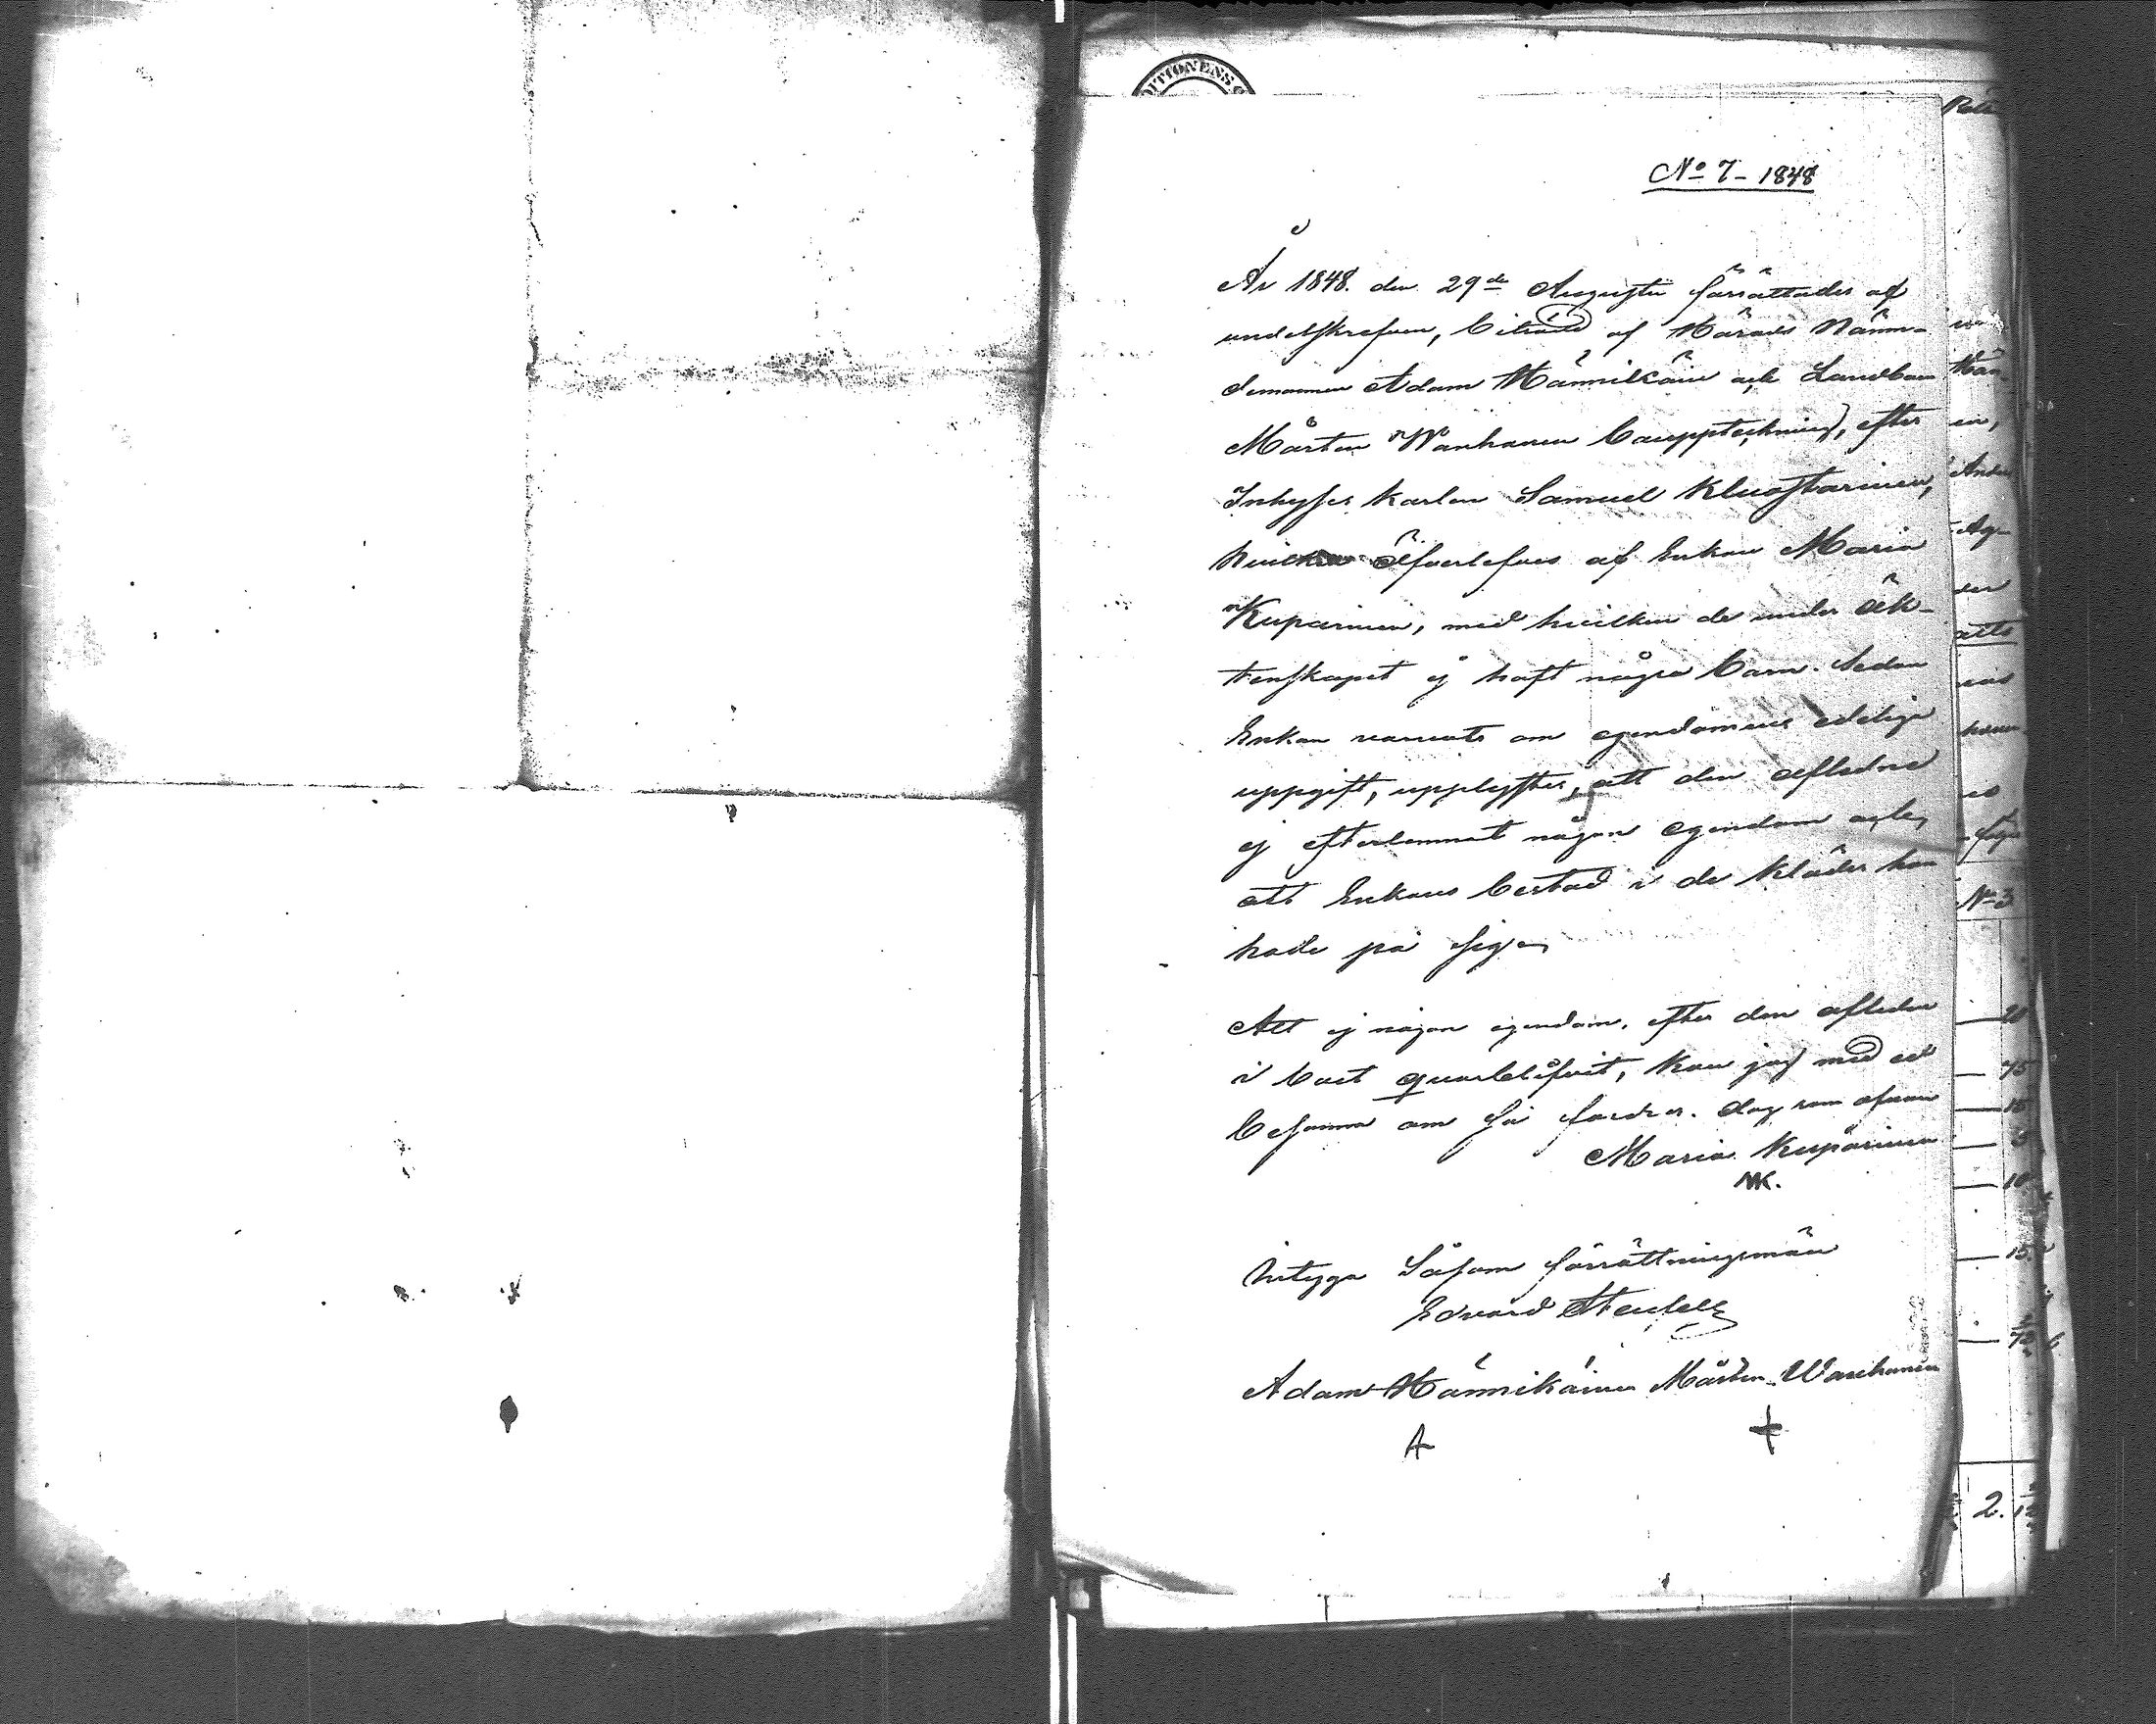 DITIONENS
No 7 - 1848
År 1848. den 29de Augusti förrättades af
underskrefven, biträdd af Härads Nämn-
demannen Adam Hännikäin och Landbon
Mårten Wanhanen bouppteckning, efter
Inhyses karlen Samuel Kluastarinen,
hvilken öfverlefves af Enkan Maria
Kuparinen, med hvilken de under äk-
tenskapet ej haft några barn. Sedan
Enkan varnats om egendomens edeliga
uppgift, upplystes, att den aflidne
ej efterlemnat någon egendom och
att Enkans bestod i de kläder hon
hade på sig
Att ej någon egendom, efter den aflidne
i boet qvarblifvit, kan jag med ed
besanna om så fordras. dag som ofvan
Maria Kuparinen
MK.
Intyga Såsom förrättningsmän
Edvard
Adam Hännikäinen Mårten Wanhanen
A +
No 3
20
75
15
10
15
2.